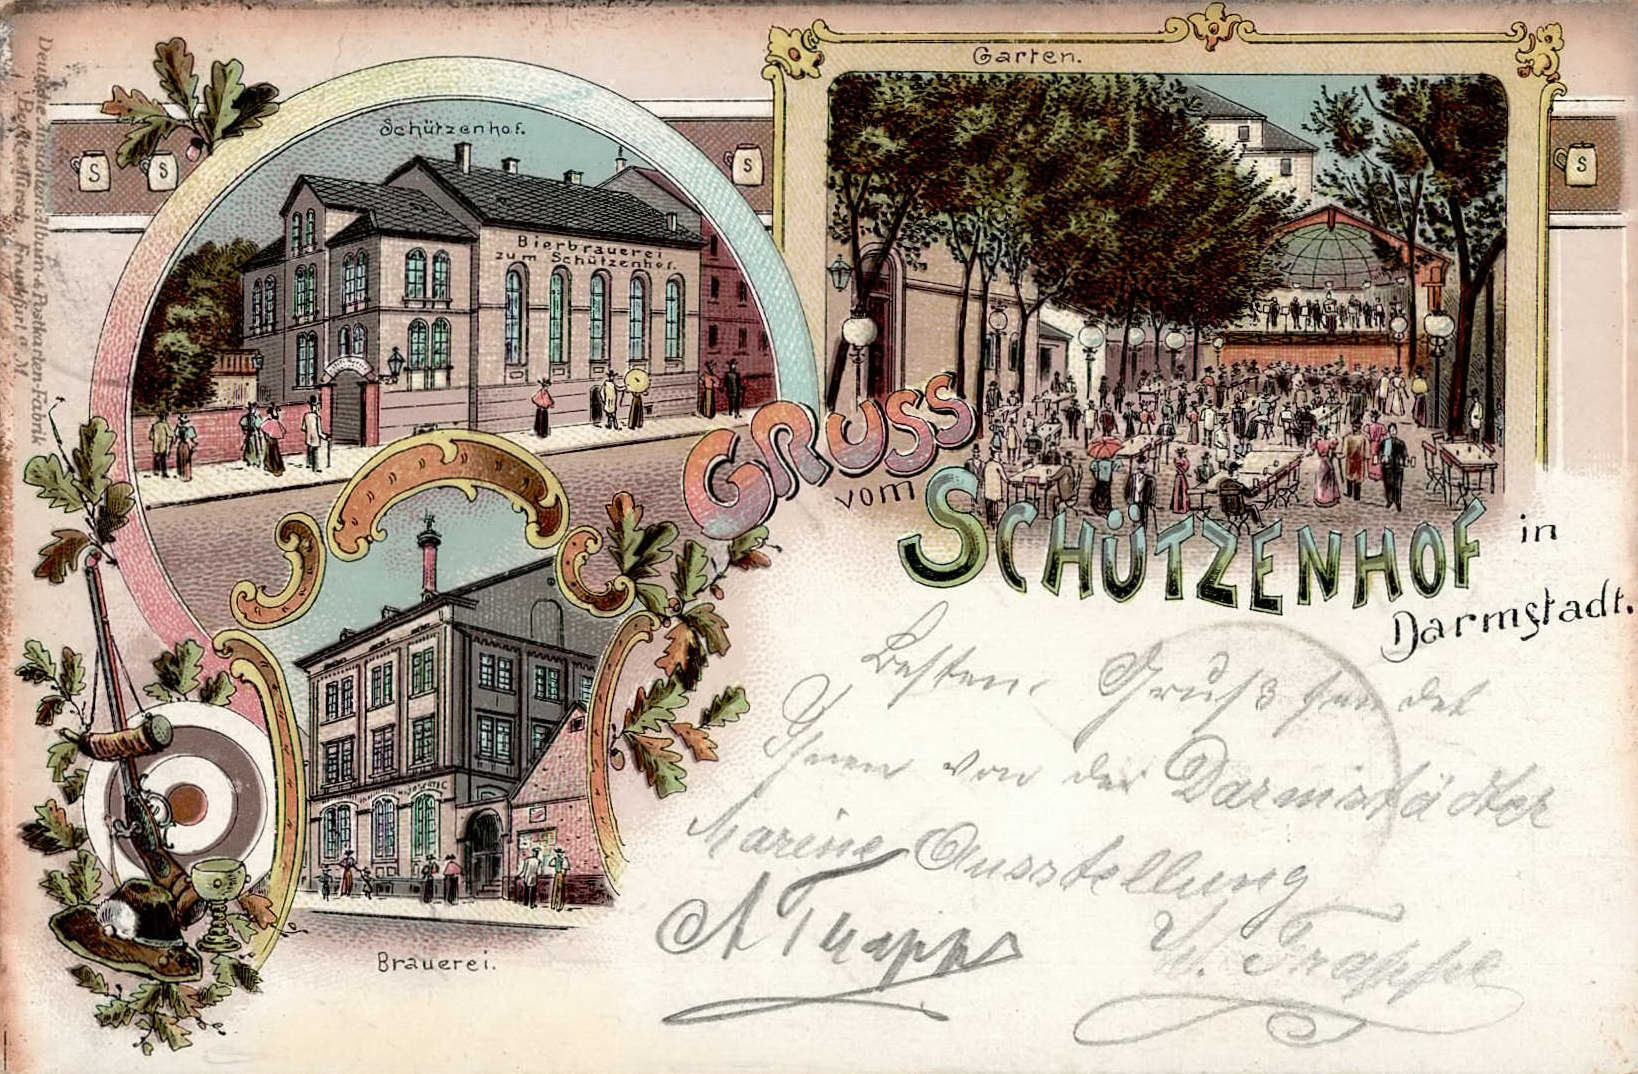 Deutsche Ansichtenalbum & Postkarten-Fabrik
Frankfurt a. M
Schützenhof.
Garten.
S
S
S
S
Bierbrauerei
zum Schützenhof.
GRUSS
vom
SCHÜTZENHOF in
Darmstadt.
Brauerei.
Besten Gruß sendet
Ihnen von der Darmstädter
Marine Ausstellung
W. Trappe